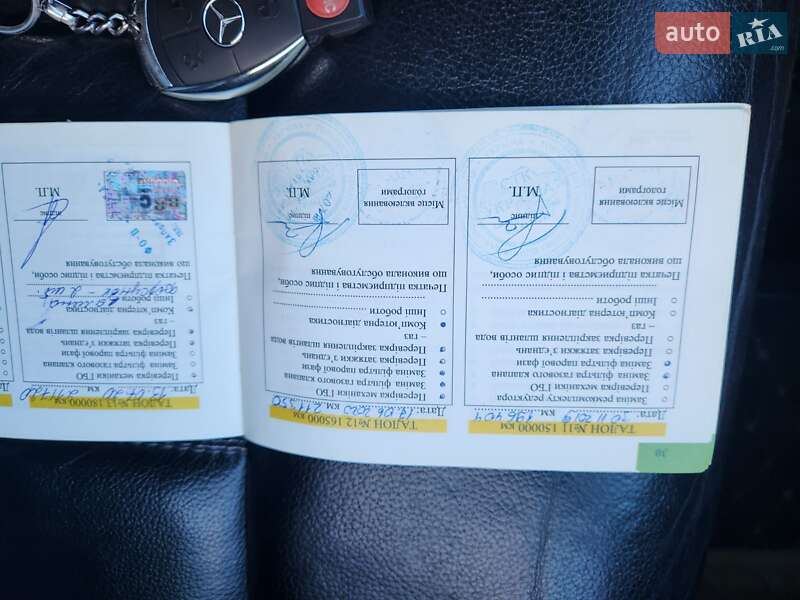 auto RIA .com
30
ТАЛОН №11 150000 км
Дата: 20.11.2019 км.
Заміна ремкомплекту редуктора
Перевірка механіки ГБО
Заміна фільтра газового клапана
Заміна фільтра парової фази
Перевірка затяжки з'єднань
Перевірка закріплення шлангів вода
– газ
Комп'ютерна діагностика
Інші роботи
Печатка підприємства і підпис особи,
що виконала обслуговування
підпис
М.П.
Місце вклеювання
голограми
ТАЛОН №12 165000 км
Дата: .06.2020 км.
Перевірка механіки ГБО
Заміна фільтра газового клапана
Заміна фільтра парової фази
Перевірка затяжки з'єднань
Перевірка закріплення шлангів вода
– газ
Комп'ютерна діагностика
Інші роботи
Печатка підприємства і підпис особи,
що виконала обслуговування
підпис
М.П.
Місце вклеювання
голограми
ТАЛОН №13 180000 км
Дата: км.
Перевірка механіки ГБО
Заміна фільтра газового клапана
Заміна фільтра парової фази
Перевірка затяжки з'єднань
Перевірка закріплення шлангів вода
– газ
Комп'ютерна діагностика
Інші роботи
Печатка підприємства і підпис особи,
що виконала обслуговування
підпис
М.П.